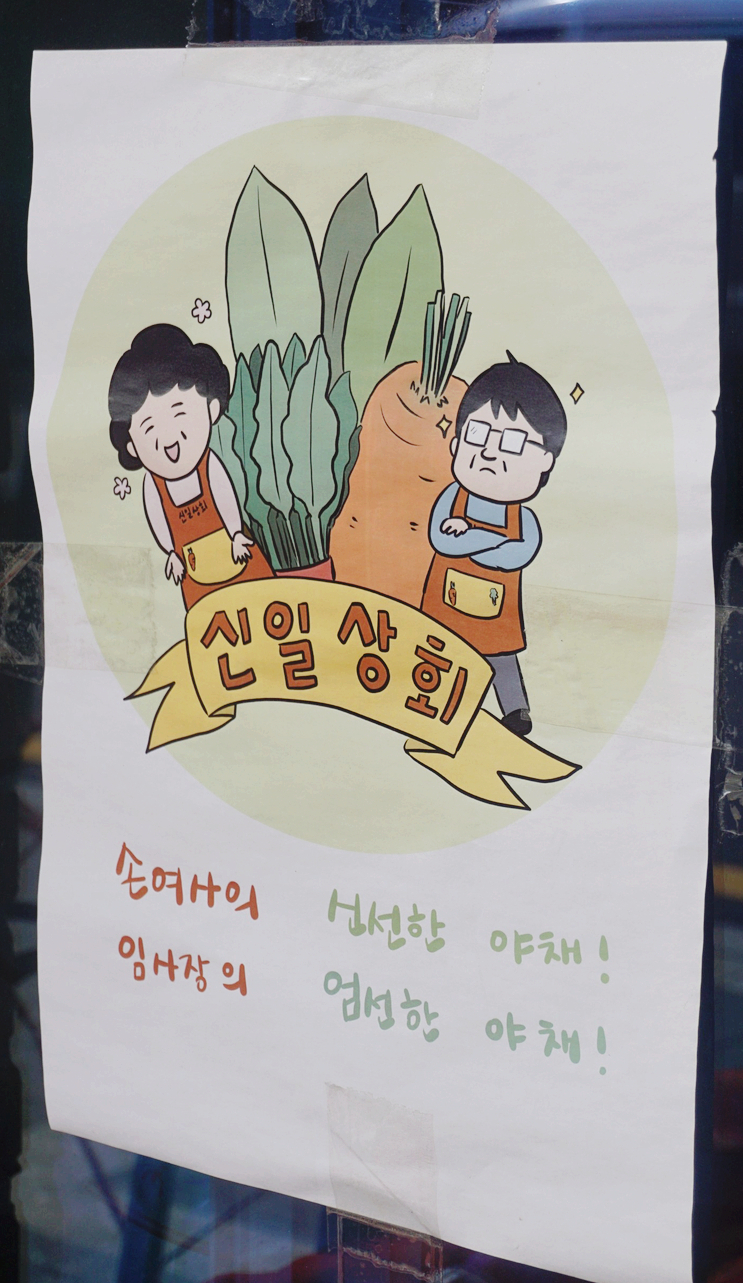 신일상회
신일 상회
손여사의 신선한 야채!
임사장의 엄선한 야채!